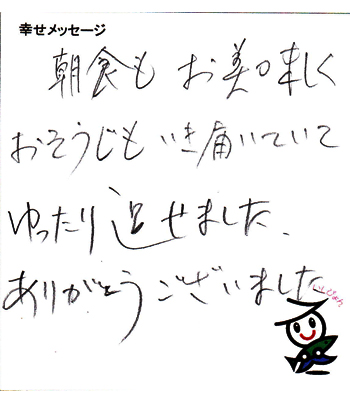 幸せメッセージ
朝食も お美味しく
おそうじも いき届いていて
ゆったり過せました、
ありがとうございました